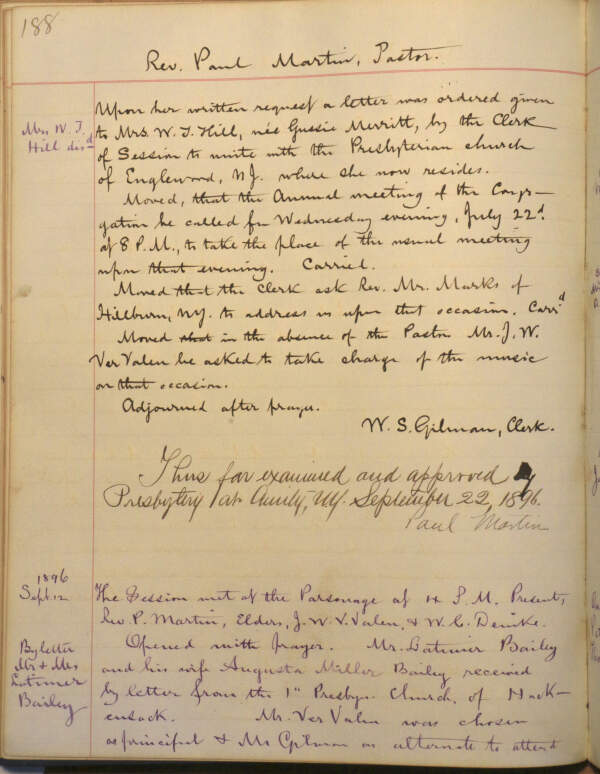 188
Rev. Paul Martin, Pastor.
Mrs W. J.
Hill dis'd
Upon her written request a letter was ordered given
to Mrs. W. J. Hill, née Gussie Merritt, by the Clerk
of Session to unite with the Presbyterian church
of Englewood, N.J. where she now resides.
Moved, that the Annual meeting of the Congre-
gation be called for Wednesday evening, July 22d.
at 8 P.M., to take the place of the usual meeting
upon that evening. Carried.
Moved that the Clerk ask Rev. Mr. Marks of
Hillburn, N.Y. to address us upon that occasion. Carr'd
Moved that in the absence of the Pastor Mr. J. W.
Ver Valen be asked to take charge of the music
on that occasion.
Adjourned after prayer.
W. S. Gilman, Clerk.
Thus far examined and approved by
Presbytery at September 22, 1896.
Paul Martin
1896
Sept. 12
The Session met at the Parsonage at 4 P.M. Present,
Rev P. Martin, Elders, J. W. V. Valen, & W. C.
By letter
Mr & Mrs
Latimer
Bailey
Opened with prayer. Mr. Latimer Bailey
and his wife Augusta Miller Bailey received
by letter from the 1st Presbyn. Church, of Hack-
ensack. Mr. Ver Valen was chosen
as principal & Mr Gilman as alternate to attend